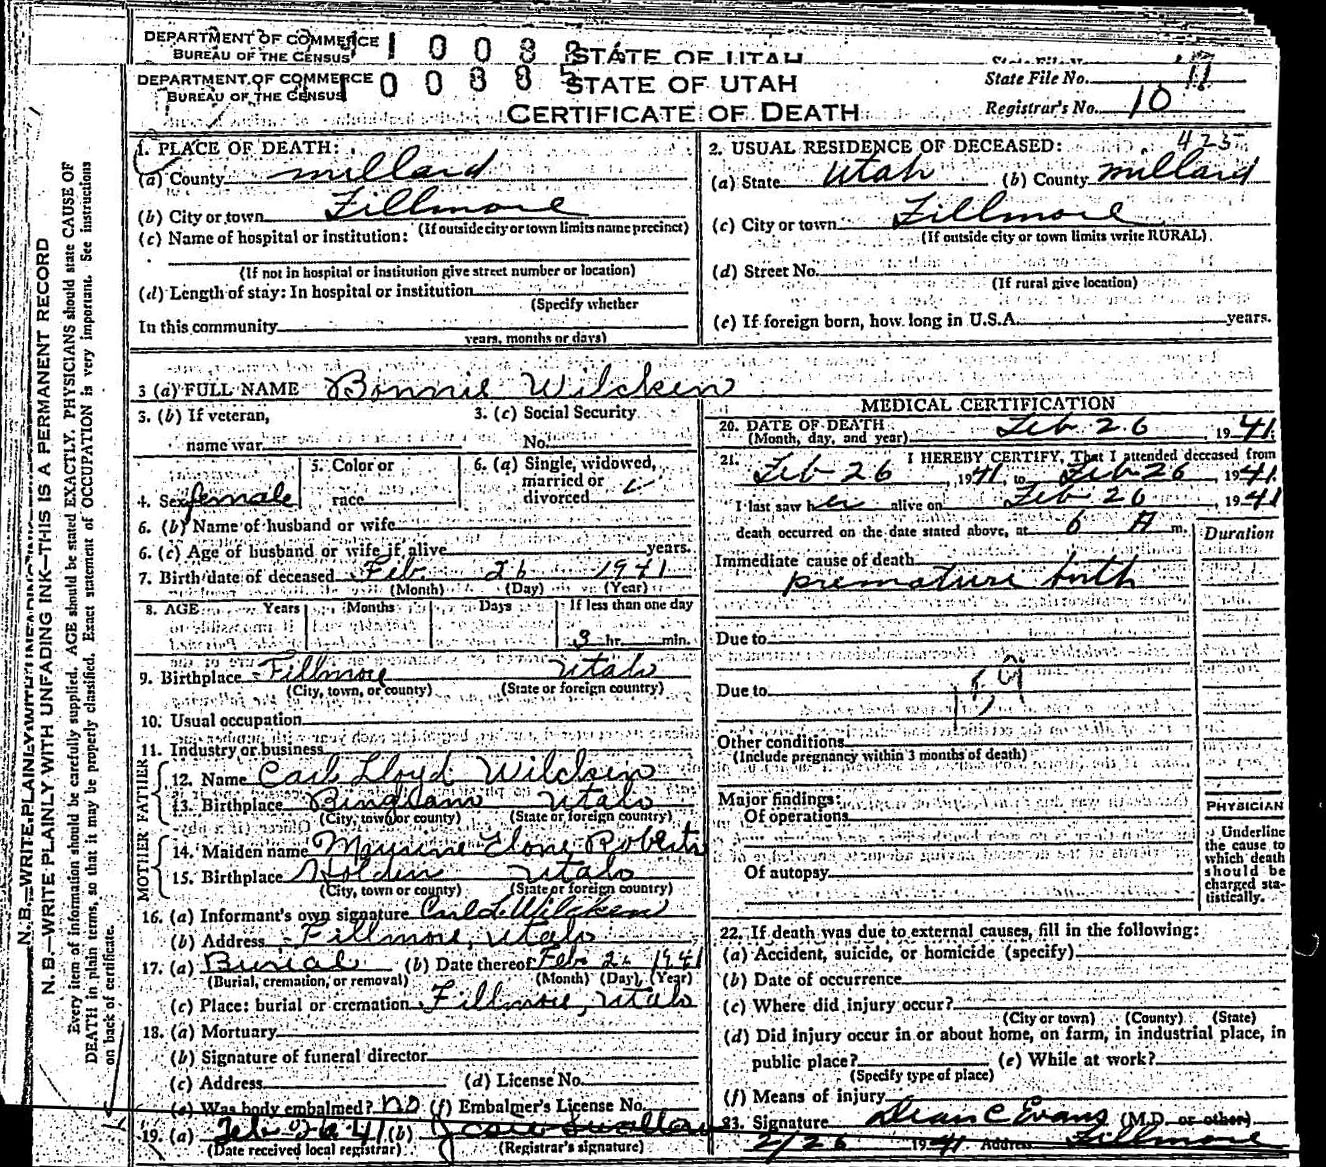 DEPARTMENT OF COMMERCE
BUREAU OF THE CENSUS
STATE OF UTAH
DEPARTMENT OF COMMERCE
BUREAU OF THE CENSUS
STATE OF UTAH
CERTIFICATE OF DEATH
State File No. 11
Registrar's No. 10
N. B.—WRITE PLAINLY WITH UNFADING INK—THIS IS A PERMANENT RECORD
Every item of information should be carefully supplied. AGE should be stated EXACTLY. PHYSICIANS should state CAUSE OF
DEATH in plain terms, so that it may be properly classified. Exact statement of OCCUPATION is very important. See instructions
on back of certificate.
1. PLACE OF DEATH:
(a) County Millard
(b) City or town Fillmore
(If outside city or town limits name precinct)
(c) Name of hospital or institution:
(If not in hospital or institution give street number or location)
(d) Length of stay: In hospital or institution
(Specify whether
In this community
years, months or days)
2. USUAL RESIDENCE OF DECEASED: 425
(a) State Utah (b) County Millard
(c) City or town Fillmore
(If outside city or town limits write RURAL)
(d) Street No.
(If rural give location)
(e) If foreign born, how long in U.S.A. years.
3 (a) FULL NAME Bonnie Wilcken
3. (b) If veteran,
name war
3. (c) Social Security
No.
4. Sex female
5. Color or
race
6. (a) Single, widowed,
married or
divorced
6. (b) Name of husband or wife
6. (c) Age of husband or wife if alive years.
7. Birth date of deceased Feb. 26 1941
(Month) (Day) (Year)
8. AGE Years Months Days If less than one day
3 hr. min.
9. Birthplace Fillmore Utah
(City, town, or county) (State or foreign country)
10. Usual occupation
11. Industry or business
FATHER
12. Name Carl Lloyd Wilcken
13. Birthplace Bingham Utah
(City, town or county) (State or foreign country)
MOTHER
14. Maiden name Maurine Elone Roberts
15. Birthplace Holden Utah
(City, town or county) (State or foreign country)
16. (a) Informant's own signature Carl L. Wilcken
(b) Address Fillmore, Utah
17. (a) Burial (b) Date thereof Feb 26 1941
(Burial, cremation, or removal) (Month) (Day) (Year)
(c) Place: burial or cremation Fillmore, Utah
18. (a) Mortuary
(b) Signature of funeral director
(c) Address (d) License No.
(e) Was body embalmed? no (f) Embalmer's License No.
19. (a) Feb 26 41 (b)
(Date received local registrar) (Registrar's signature)
MEDICAL CERTIFICATION
20. DATE OF DEATH
(Month, day, and year) Feb 26, 1941.
21. I HEREBY CERTIFY, That I attended deceased from
Feb 26, 1941, to Feb 26, 1941.
I last saw her alive on Feb 26, 1941
death occurred on the date stated above, at 6 A m.
Duration
Immediate cause of death
premature birth
Due to
Due to
Other conditions
(Include pregnancy within 3 months of death)
Major findings:
Of operations
Of autopsy
PHYSICIAN
Underline
the cause to
which death
should be
charged sta-
tistically.
22. If death was due to external causes, fill in the following:
(a) Accident, suicide, or homicide (specify)
(b) Date of occurrence
(c) Where did injury occur?
(City or town) (County) (State)
(d) Did injury occur in or about home, on farm, in industrial place, in
public place? (e) While at work?
(Specify type of place)
(f) Means of injury
23. Signature Dean C Evans (M.D. or other)
2/26 1941 Address Fillmore